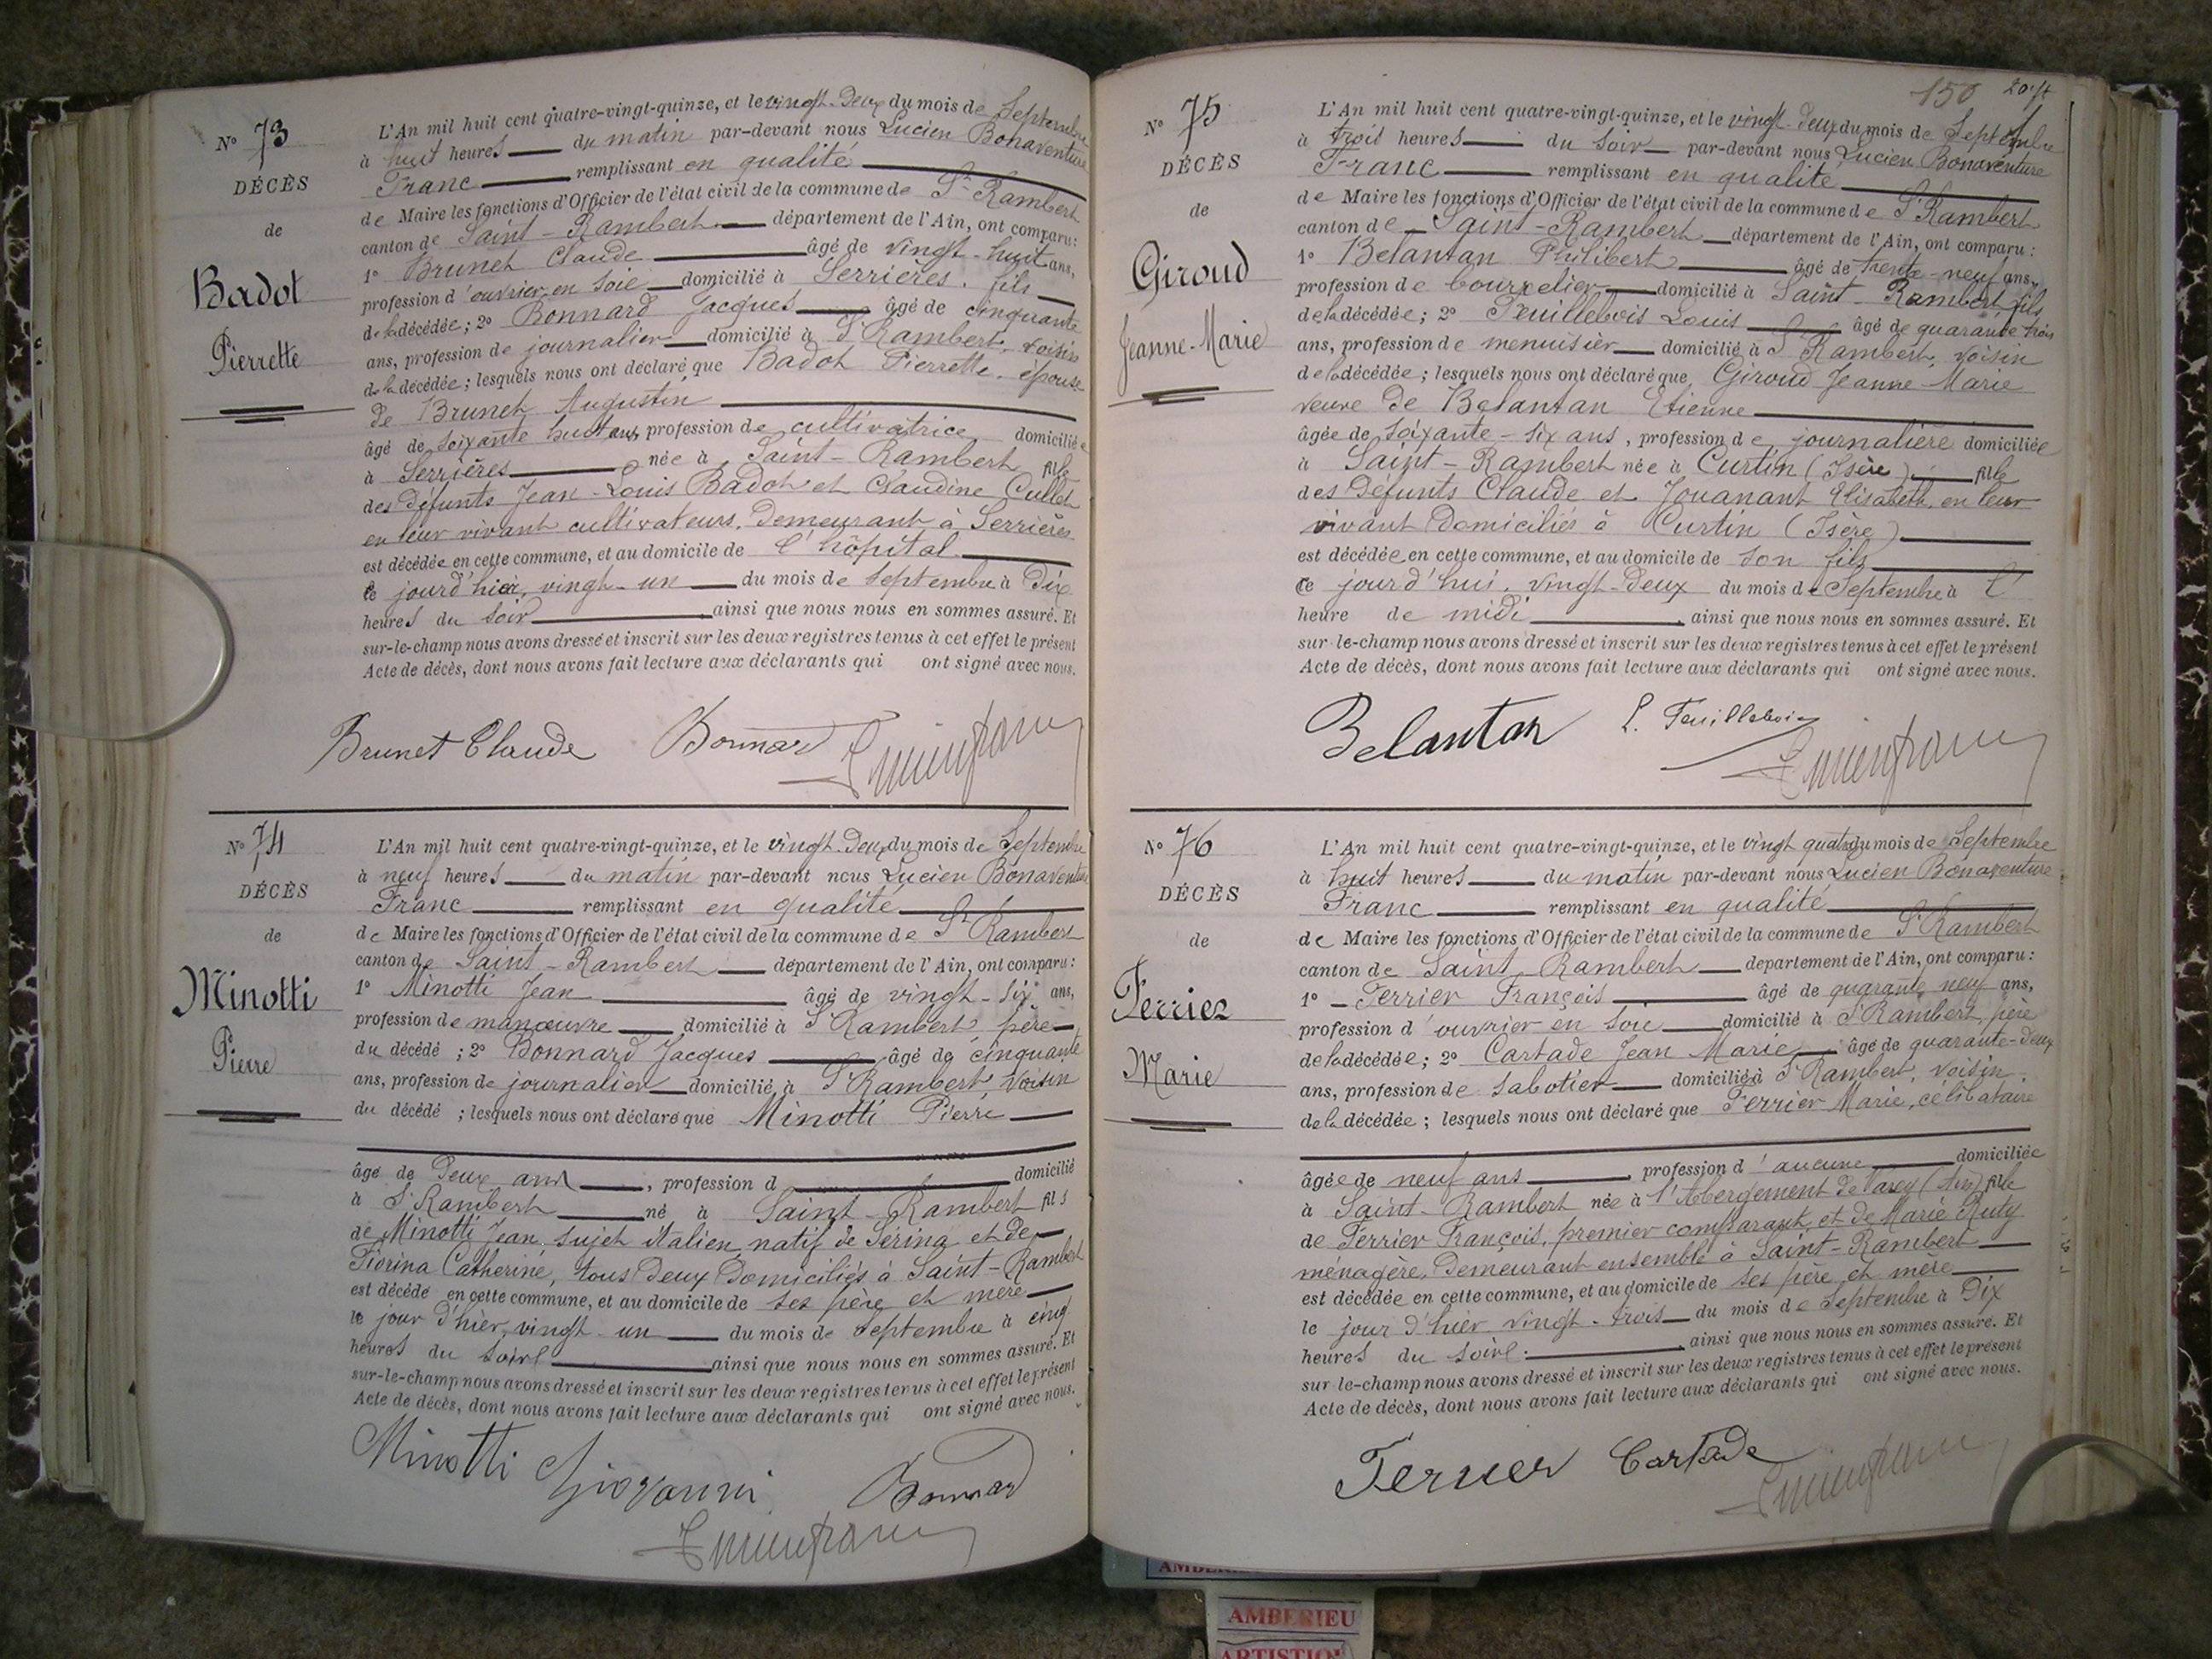 N° 73
DÉCÈS
de
Badot
Pierrette
L'An mil huit cent quatre-vingt-quinze, et le vingt-deux du mois de Septembre
à huit heures du matin par-devant nous Lucien Bonaventure
Franc remplissant en qualité
de Maire les fonctions d'Officier de l'état civil de la commune de St Rambert
canton de Saint-Rambert département de l'Ain, ont comparu:
1° Brunet Claude âgé de vingt-huit ans,
profession d'ouvrier en soie domicilié à Serrières, fils
de la décédée; 2° Bonnard Jacques âgé de cinquante
ans, profession de journalier domicilié à St Rambert, voisin
de la décédée; lesquels nous ont déclaré que Badot Pierrette, épouse
de Brunet Augustin
âgé de soixante huit ans, profession de cultivatrice domiciliée
à Serrières née à Saint-Rambert fille
des défunts Jean-Louis Badot et Claudine Cullet
en leur vivant cultivateurs, demeurant à Serrières
est décédée en cette commune, et au domicile de l'hôpital
le jour d'hier, vingt-un du mois de septembre à dix
heures du soir ainsi que nous nous en sommes assuré. Et
sur-le-champ nous avons dressé et inscrit sur les deux registres tenus à cet effet le présent
Acte de décès, dont nous avons fait lecture aux déclarants qui ont signé avec nous.
Brunet Claude Bonnard
N° 74
DÉCÈS
de
Minotti
Pierre
L'An mil huit cent quatre-vingt-quinze, et le vingt-deux du mois de Septembre
à neuf heures du matin par-devant nous Lucien Bonaventure
Franc remplissant en qualité
de Maire les fonctions d'Officier de l'état civil de la commune de St Rambert
canton de Saint-Rambert département de l'Ain, ont comparu:
1° Minotti Jean âgé de vingt-six ans,
profession de manœuvre domicilié à St Rambert père
du décédé; 2° Bonnard Jacques âgé de cinquante
ans, profession de journalier domicilié à St Rambert voisin
du décédé; lesquels nous ont déclaré que Minotti Pierre
âgé de deux ans, profession d domicilié
à St Rambert né à Saint-Rambert fils
de Minotti Jean, sujet italien natif de Sérina et de
Fiorina Catherine, tous deux domiciliés à Saint-Rambert
est décédé en cette commune, et au domicile de ses père et mère
le jour d'hier, vingt-un du mois de septembre à cinq
heures du soir ainsi que nous nous en sommes assuré. Et
sur-le-champ nous avons dressé et inscrit sur les deux registres tenus à cet effet le présent
Acte de décès, dont nous avons fait lecture aux déclarants qui ont signé avec nous.
Minotti Giovanni Bonnard
150
N° 75
DÉCÈS
de
Giroud
Jeanne-Marie
L'An mil huit cent quatre-vingt-quinze, et le vingt-deux du mois de Septembre
à trois heures du soir par-devant nous Lucien Bonaventure
Franc remplissant en qualité
de Maire les fonctions d'Officier de l'état civil de la commune de St Rambert
canton de Saint-Rambert département de l'Ain, ont comparu:
1° Belantan Philibert âgé de trente-neuf ans,
profession de bourrelier domicilié à Saint-Rambert fils
de la décédée; 2° Feuillebois Louis âgé de quarante trois
ans, profession de menuisier domicilié à St Rambert, voisin
de la décédée; lesquels nous ont déclaré que Giroud Jeanne-Marie
veuve de Belantan Etienne
âgée de soixante-six ans, profession de journalière domiciliée
à Saint-Rambert née à Curtin (Isère) fille
des défunts Claude et Jouanant Elisabeth, en leur
vivant domiciliés à Curtin (Isère)
est décédée en cette commune, et au domicile de son fils
ce jourd'hui, vingt-deux du mois de Septembre à l'
heure de midi ainsi que nous nous en sommes assuré. Et
sur-le-champ nous avons dressé et inscrit sur les deux registres tenus à cet effet le présent
Acte de décès, dont nous avons fait lecture aux déclarants qui ont signé avec nous.
Belantan L. Feuillebois
N° 76
DÉCÈS
de
Ferrier
Marie
L'An mil huit cent quatre-vingt-quinze, et le vingt quatre du mois de Septembre
à huit heures du matin par-devant nous Lucien Bonaventure
Franc remplissant en qualité
de Maire les fonctions d'Officier de l'état civil de la commune de St Rambert
canton de Saint-Rambert département de l'Ain, ont comparu:
1° Ferrier François âgé de quarante neuf ans,
profession d'ouvrier en soie domicilié à St Rambert, père
de la décédée; 2° Cartade Jean Marie âgé de quarante-deux
ans, profession de sabotier domicilié à St Rambert, voisin
de la décédée; lesquels nous ont déclaré que Ferrier Marie, célibataire
âgée de neuf ans, profession d'aucune domiciliée
à Saint-Rambert née à l'Abergement de Varey (Ain) fille
de Ferrier François, premier comparant et de Marie Ruty
ménagère, demeurant ensemble à Saint-Rambert
est décédée en cette commune, et au domicile de ses père et mère
le jour d'hier vingt-trois du mois de Septembre à dix
heures du soir ainsi que nous nous en sommes assuré. Et
sur-le-champ nous avons dressé et inscrit sur les deux registres tenus à cet effet le présent
Acte de décès, dont nous avons fait lecture aux déclarants qui ont signé avec nous.
Ferrier Cartade
AMBERIEU